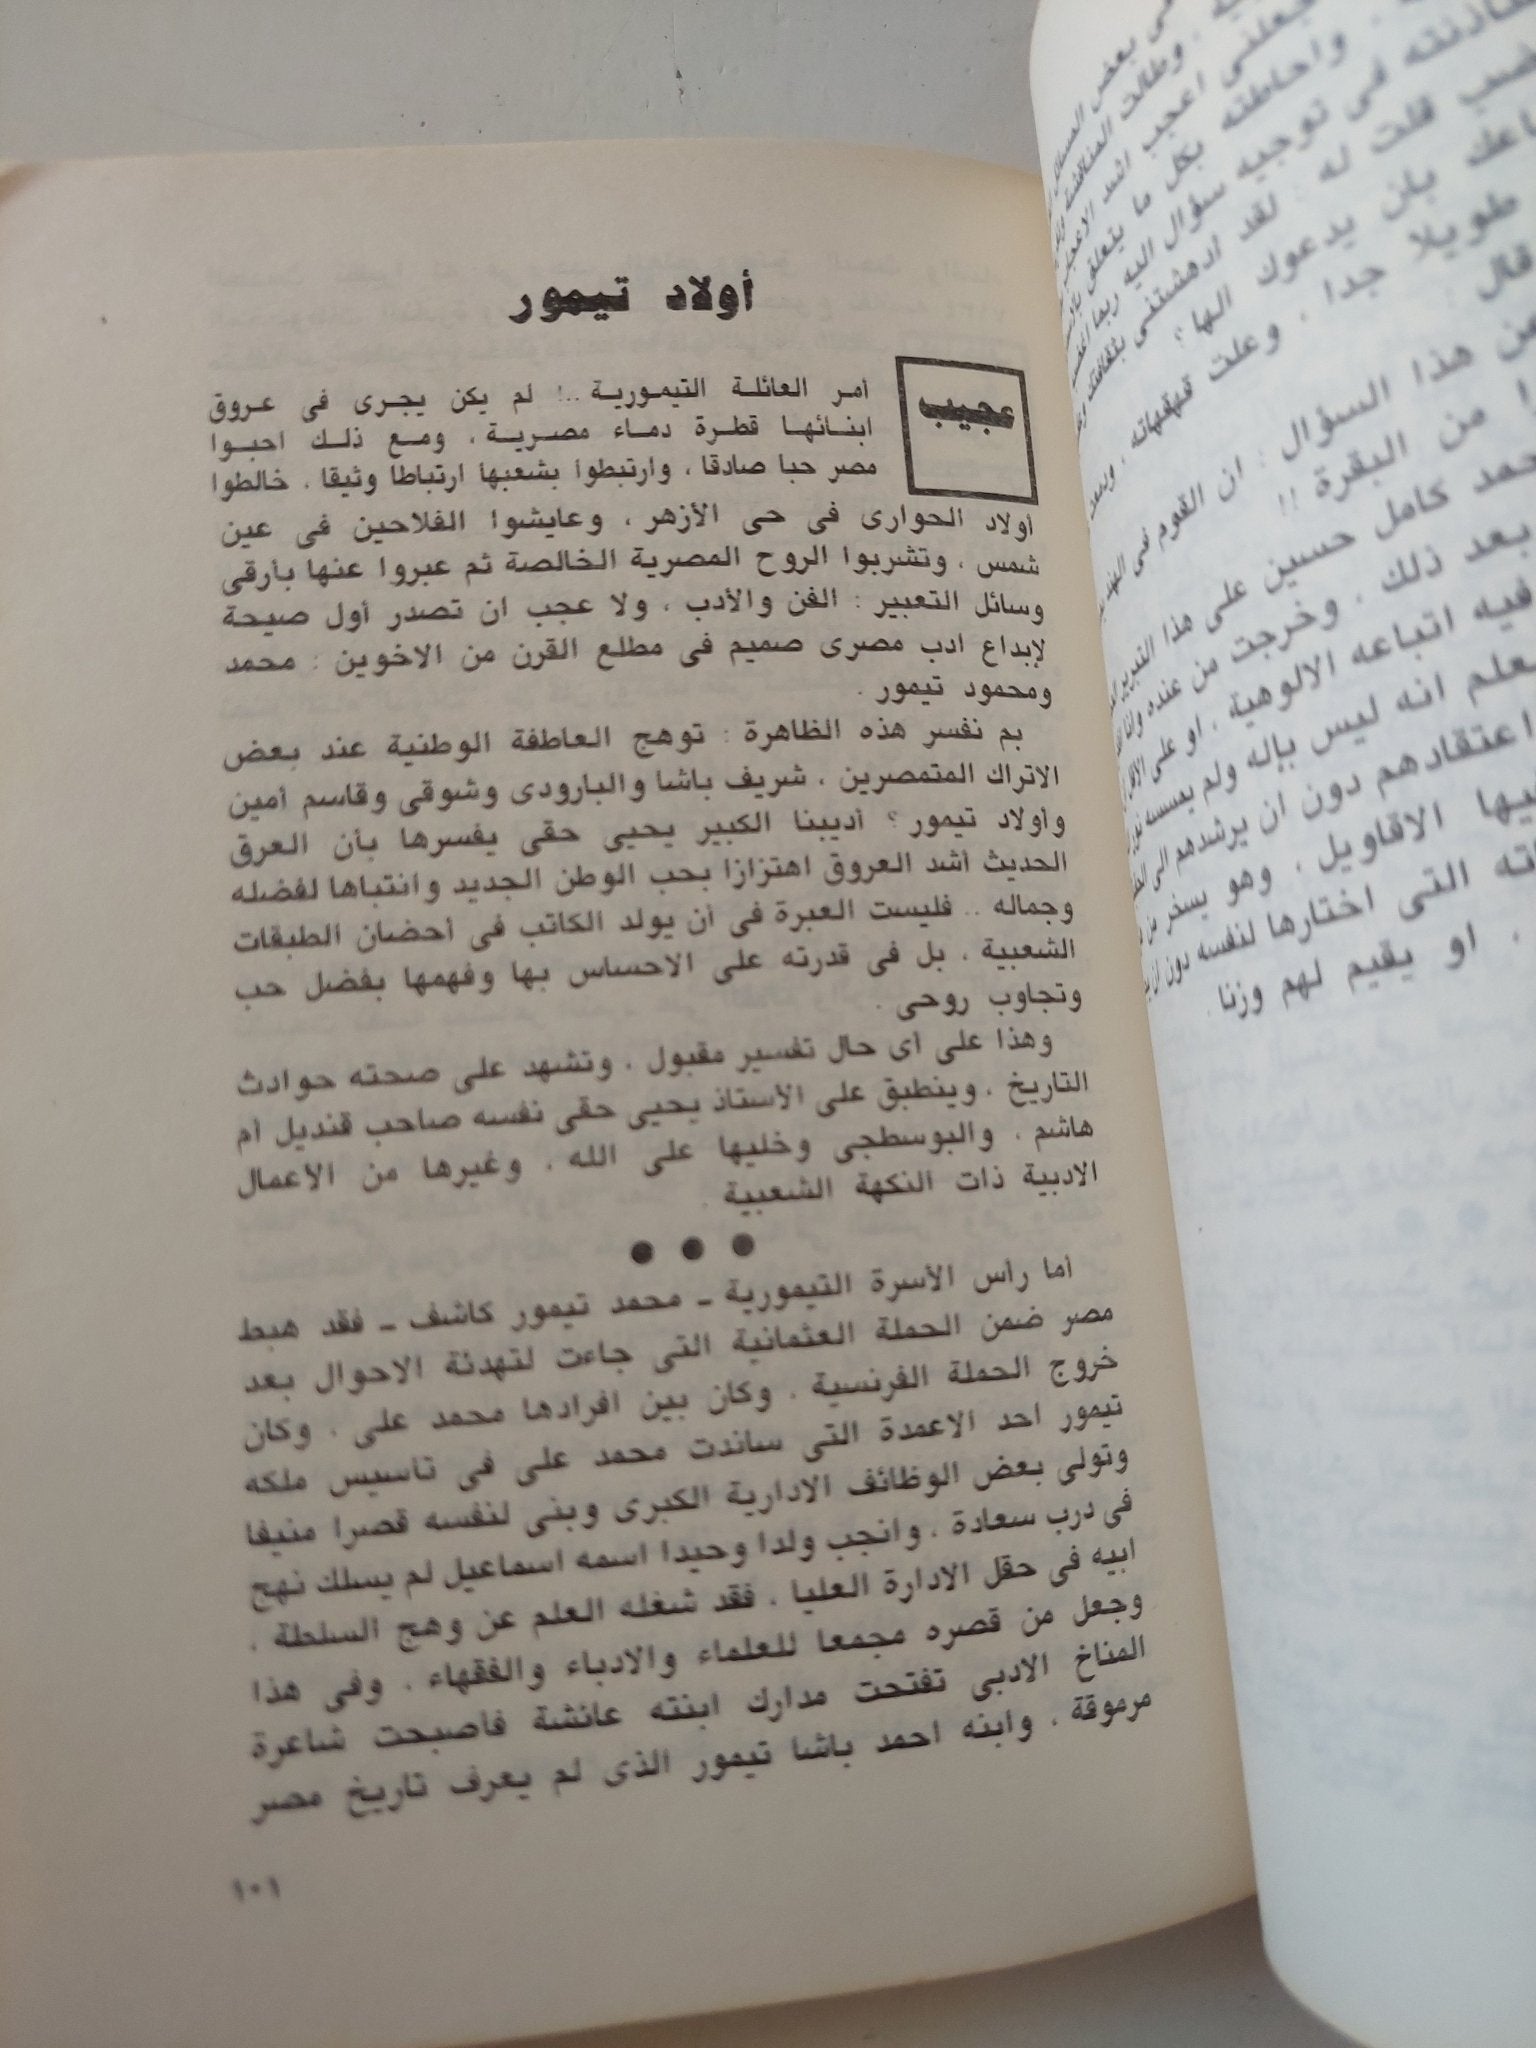 أولاد تيمور
عجيب
أمر العائلة التيمورية ..! لم يكن يجرى فى عروق
ابنائها قطرة دماء مصرية ، ومع ذلك احبوا
مصر حبا صادقا ، وارتبطوا بشعبها ارتباطا وثيقا ، خالطوا
أولاد الحوارى فى حى الأزهر ، وعايشوا الفلاحين فى عين
شمس ، وتشربوا الروح المصرية الخالصة ثم عبروا عنها بأرقى
وسائل التعبير : الفن والأدب ، ولا عجب ان تصدر أول صيحة
لإبداع ادب مصرى صميم فى مطلع القرن من الاخوين : محمد
ومحمود تيمور .
بم نفسر هذه الظاهرة : توهج العاطفة الوطنية عند بعض
الاتراك المتمصرين ، شريف باشا والبارودى وشوقى وقاسم أمين
وأولاد تيمور ؟ أديبنا الكبير يحيى حقى يفسرها بأن العرق
الحديث أشد العروق اهتزازا بحب الوطن الجديد وانتباها لفضله
وجماله .. فليست العبرة فى أن يولد الكاتب فى أحضان الطبقات
الشعبية ، بل فى قدرته على الاحساس بها وفهمها بفضل حب
وتجاوب روحى .
وهذا على أى حال تفسير مقبول ، وتشهد على صحته حوادث
التاريخ ، وينطبق على الأستاذ يحيى حقى نفسه صاحب قنديل أم
هاشم ، والبوسطجى وخليها على الله ، وغيرها من الأعمال
الادبية ذات النكهة الشعبية .
● ● ●
أما رأس الأسرة التيمورية ـ محمد تيمور كاشف ـ فقد هبط
مصر ضمن الحملة العثمانية التى جاءت لتهدئة الاحوال بعد
خروج الحملة الفرنسية ، وكان بين افرادها محمد على ، وكان
تيمور احد الاعمدة التى ساندت محمد على فى تاسيس ملكه
وتولى بعض الوظائف الادارية الكبرى وبنى لنفسه قصرا منيفا
فى درب سعادة ، وانجب ولدا وحيدا اسمه اسماعيل لم يسلك نهج
ابيه فى حقل الادارة العليا ، فقد شغله العلم عن وهج السلطة ،
وجعل من قصره مجمعا للعلماء والادباء والفقهاء ، وفى هذا
المناخ الادبى تفتحت مدارك ابنته عائشة فأصبحت شاعرة
مرموقة ، وابنه احمد باشا تيمور الذى لم يعرف تاريخ مصر
١٠١
فى بعض
وطالت المناقشة
فجعلنى اعجب اشد
واحاطته بكل ما يتعلق
فى توجيه سؤال اليه ربما
قلت له : لقد ادهشتنى بثقافتك
بان يدعوك الها ؟
طويلا جدا ، وعلت قهقهاته ،
قال :
من هذا السؤال : ان القوم فى الهند
من البقرة !!
كامل حسين على هذا التبرير
بعد ذلك ، وخرجت من عنده
فيه اتباعه الالوهية ، او على الاقل
انه ليس بإله ولم يمسسه
اعتقادهم دون ان يرشدهم الى
الاقاويل ، وهو يسخر من
التى اختارها لنفسه دون ان
، او يقيم لهم وزنا .